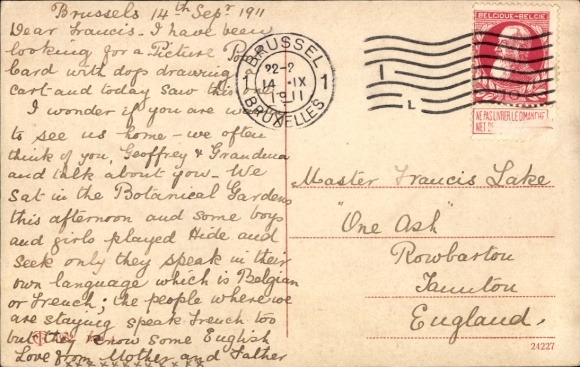 Brussels 14th Sepr 1911
Dear Francis - I have been
looking for a Picture Po
Card with dogs drawing
cart and today saw this one
I wonder if you are
to see us home - we often
think of you, Geoffrey & Grandma
and talk about you - We
sat in the Botanical Gardens
this afternoon and some boys
and girls played Hide and
Seek only they speak in their
own language which is Belgian
or French; the people where we
are staying speak French too
but they know some English
Love from Mother and Father
x x x x x x x x x x x
BRUSSEL
1 1
14 IX
1911
BRUXELLES
1
L
BELGIQUE-BELGIE
NE PAS LIVRER LE DIMANCHE
Master Francis Lake
"One Ash"
Rowbarton
Taunton
England.
24227